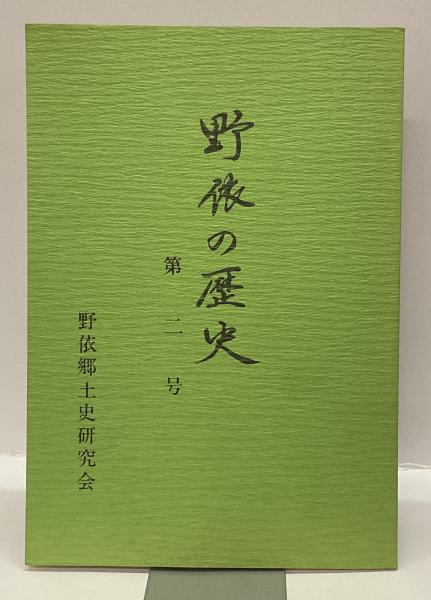 野依の歴史
第二号
野依郷土史研究会